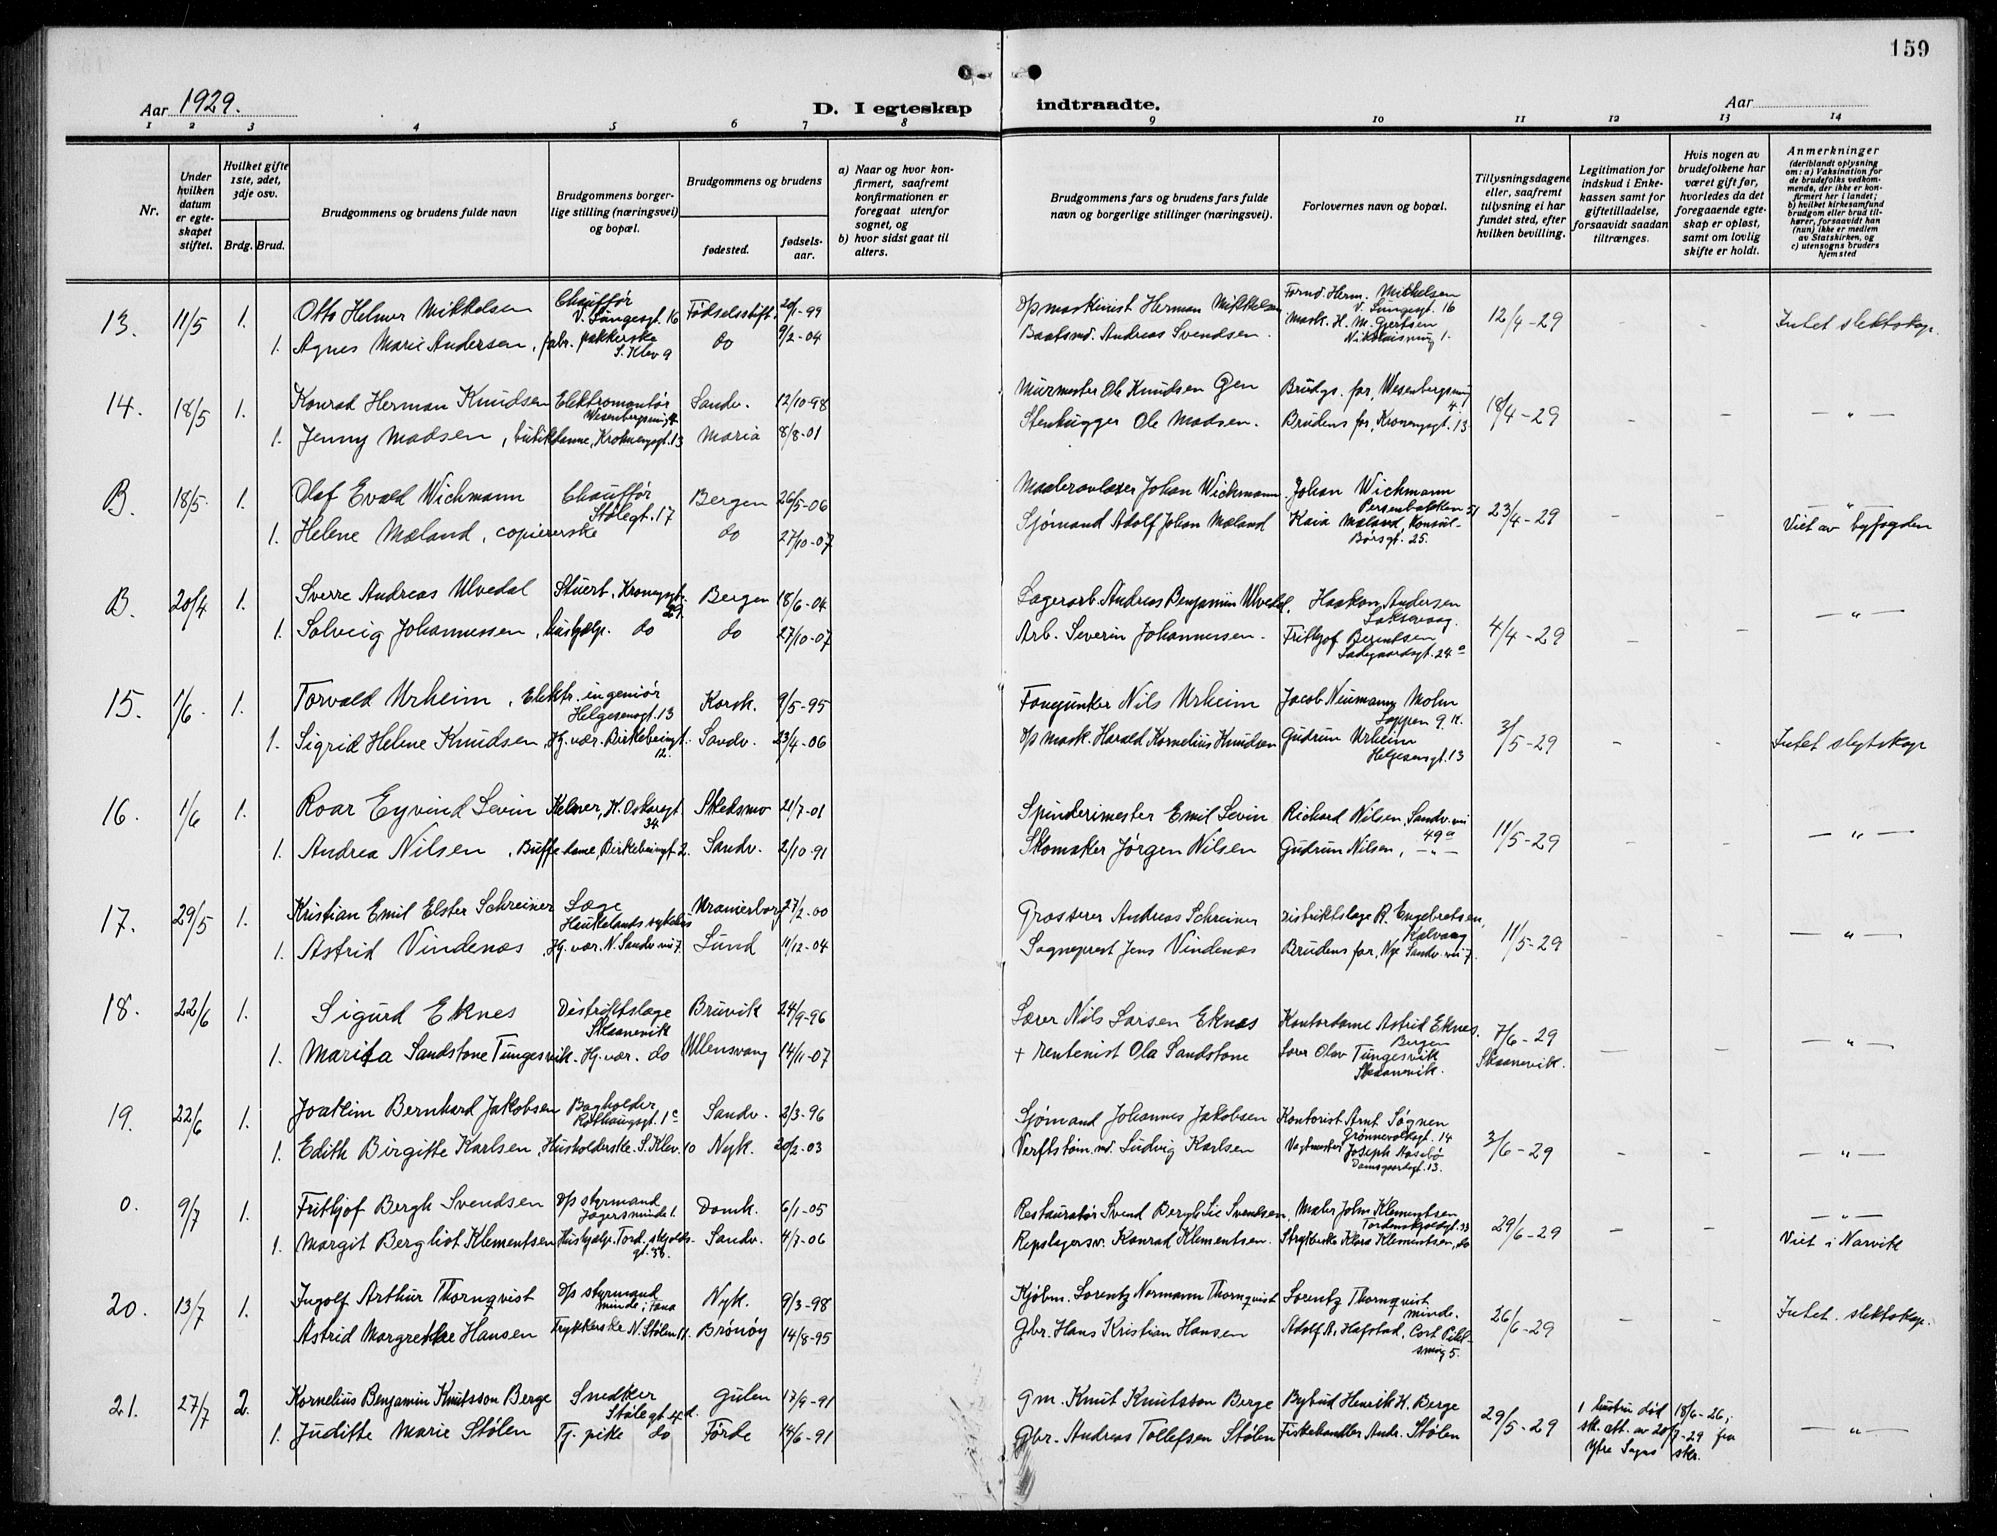 159
Aar 1929.
D. I egteskap indtraadte.
Aar
1 2 3 4 5 6 7 8 9 10 11 12 13 14
Nr.
Under hvilken datum er egteskapet stiftet.
Hvilket gifte 1ste, 2det, 3dje osv.
Brdg. Brud.
Brudgommens og brudens fulde navn
Brudgommens borgerlige stilling (næringsvei) og bopæl.
Brudgommens og brudens
fødested.
fødselsaar.
a) Naar og hvor konfirmert, saafremt konfirmationen er foregaat utenfor sognet, og
b) hvor sidst gaat til alters.
Brudgommens fars og brudens fars fulde navn og borgerlige stillinger (næringsvei).
Forlovernes navn og bopæl.
Tillysningsdagene eller, saafremt tillysning ei har fundet sted, efter hvilken bevilling.
Legitimation for indskud i Enkekassen samt for giftetilladelse, forsaavidt saadan tiltrænges.
Hvis nogen av brudefolkene har været gift før, hvorledes da det foregaaende egteskap er opløst, samt om lovlig skifte er holdt.
Anmerkninger
(deriblandt oplysning om: a) Vaksination for de brudefolks vedkommende, der ikke er konfirmert her i landet; b) hvilket kirkesamfund brudgom eller brud tilhører, forsaavidt han (hun) ikke er medlem av Statskirken, og c) utensogns bruders hjemsted
13. 11/5 1. Otto Helmer Mikkelsen Chauffør V. Lungegt. 16 Fødselsstift. 20/1-99 D/p maskinist Herman Mikkelsen Fornd. Herm. Mikkelsen V. Lungegt. 16 12/4-29 - - Intet slektskap.
1. Agnes Marie Andersen, fabr. pakkerske S. Klev 9 do 9/2-04 Baatsmd. Andreas Svendsen. Mask. H. M. Gjertsen Nikolaismug 1.
14. 18/5 1. Konrad Herman Knudsen Elektromontør Wesenbergsmug 4. Sandv. 12/10-98 Murmester Ole Knudsen Gjen Brudgs. far, Wesenbergsmug 4. 18/4-29 - - -"-
1. Jenny Madsen, butikdame, Krohnengt. 13 Maria 8/8-01 Stenhugger Ole Madsen. Brudens far, Kronengt. 13
B. 18/5 1. Olaf Evald Wichmann Chauffør Stølegt. 17 Bergen 26/5-06 Johan Wichmann Johan Wichmann Persenbakken 51 23/4-29 -"-
1. Helene Mæland, copiererske do 27/10-07 Sjømand Adolf Johan Mæland Kaia Mæland, Konsul-Børsgt. 25. Viet av byfogden
B. 20/4 1. Sverre Andreas Ulvedal Stuert, Kronengt. 29. Bergen 18/6-04 Lagerarb. Andreas Benjamin Ulvedal, Haakon Andersen Laksevaag. 4/4-29 - - -"-
1. Solveig Johannessen, hushjælp. do do 27/10-07 Arb. Severin Johannessen. Frithjof Berentsen Ladegaardsgt. 24a
15. 1/6. 1. Torvald Urheim, Elektr. ingeniør Helgesensgt. 13 Korsk. 9/5-95 Fanejunker Nils Urheim Jacob Neumann Mohn 3/5-29 - - Intet slegtskap
1. Sigrid Helene Knudsen, Hj. vær. Birkebeingt. 12. Sandv. 23/4-06 D/p mask. Harald Kornelius Knudsen Gudrun Urheim Helgesensgt. 13
16. 1/6 1. Roar Eyvind Levin Kelner, K. Oskarsgt. 34. Skedsmo 21/7-01 Spinderimester Emil Levin Richard Nilsen, Sandv.vei 49a 11/5-29 - - -"-
1. Andrea Nilsen, Buffe dame, Birkebeingt 2. Sandv. 2/10-91 Skomaker Jørgen Nilsen Gudrun Nilsen, -"-
17. 29/5 1. Kristian Emil Elster Schreiner Læge Haukelands sykehus Uranienborg 27/2-00 Grosserer Andreas Schreiner Distriktslæge R. Engebretsen, Kalvaag 11/5-29 - - -"-
1. Astrid Vindenæs, Hj. vær. N. Sandv.vei 7. Lund 11/12-04 Sogneprest Jens Vindenæs Brudens far, Nye Sandv.vei 7.
18. 22/6 1. Sigurd Eknes Distriktslæge Skaanevik Bruvik 24/9-96 Lærer Nils Larsen Eknæs Kontordame Astrid Eknes. Bergen 7/6-29 Skaanevik. - - -"-
1. Marita Sandstone Tungesvik. Hj. vær. do Ullensvang 14/11-07 + rentenist Ola Sandstone Lærer Olav Tungesvik Skaanevik.
19. 22/6 1. Joakim Bernhard Jakobsen Bogholder Rothaugsgt. 1c Sandv. 2/3-96 Sjømand Johannes Jakobsen Kontorist Arnt Søgnen Grønnevoldsgt. 14 3/6-29 - - -"-
1. Edith Birgitte Karlsen, Husholderske. S. Klev. 10 Nyk. 20/2-03 Verftstøm.md. Ludvig Karlsen Vagtmester Joseph Aasebø Damsgaardsgt. 13.
0. 9/7 1. Frithjof Bergh Svendsen D/p styrmand Jægersminde 1. Domk. 6/1-05 Restauratør Svend Bergh Lie Svendsen, Maler John Klementsen Tordenskjoldgt. 33 29/6-29 - - -"-
1. Margit Bergliot Klementsen Hushjælp. Tord.skjolds-gt. 33. Sandv. 4/7-06 Repslagersv. Konrad Klementsen. Strykerske Klara Klementsen, do Viet i Narvik
20. 13/7 1. Ingolf Arthur Thornqvist D/p styrmand Minde i Fana Nyk. 9/3-98 Kjøbm. Lorentz Normann Thornqvist Lorentz Thornqvist Minde. 26/6-29 - - Intet slektskap.
Astrid Margrethe Hansen Trykkerske N. Stølen 11. Brønøy 14/8-95 Gbr. Hans Kristian Hansen Adolf A. Hafstad, Cort Piilsmug 5.
21. 27/7 2. Kornelius Benjamin Knutsson Berge Snedker Stølegt. 4d. Gulen 17/9-91 Gm. Knut Knutsson Berge Bybud Henrik K. Berge 29/5-29 1 hustru død 18/6-26; sk. att. av 20/7-29 fra Ytre Sogns skr. -"-
1. Juditte Marie Stølen Tj. pike do Førde 14/6-91 Gbr. Andreas Tollefsen Stølen Fiskehandler Andr. Stølen